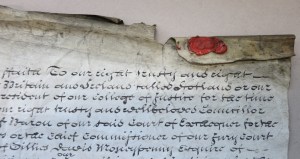 To our right trusty and right
Britain and Ireland called Scotland or our
President of our College of Justice for the time
our right trusty and Welbeloved Councillor
Baron of our said Court of Exchequer for the
or the Chief Commissioner of our Jury Court
Moneypenny Esquire of
our